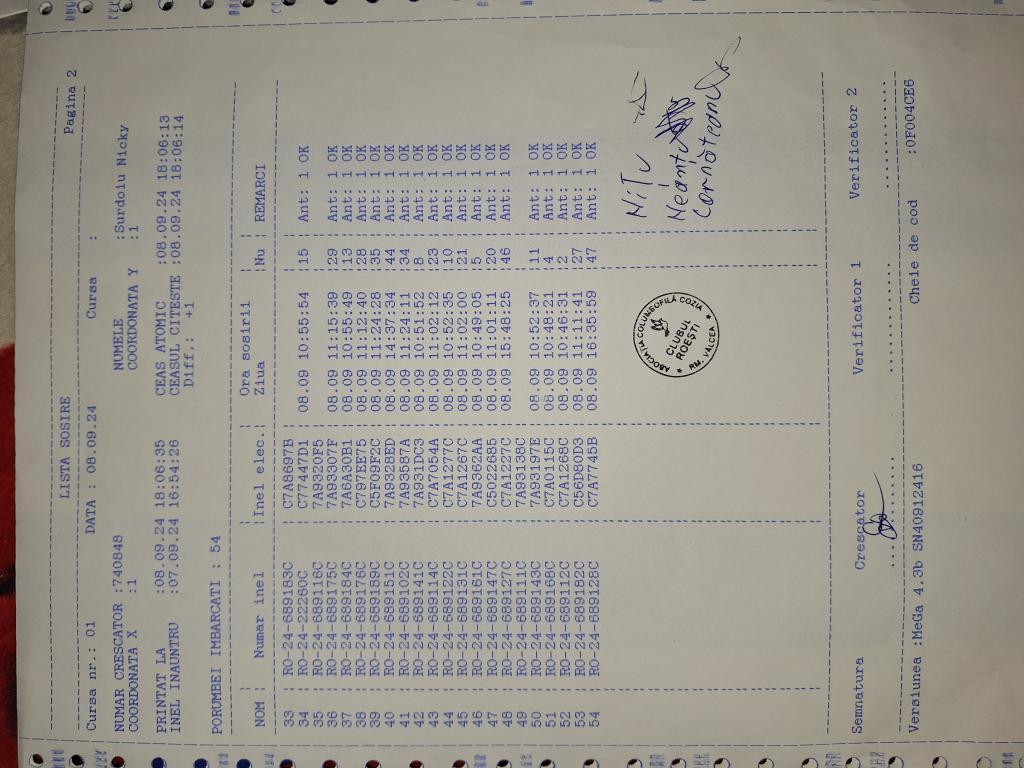 LISTA SOSIRE
Pagina 2
Cursa nr.: 01 DATA : 08.09.24 Cursa :
NUMAR CRESCATOR :740848 NUMELE :Surdoiu Nicky
COORDONATA X :1 COORDONATA Y :1
PRINTAT LA :08.09.24 18:06:35 CEAS ATOMIC :08.09.24 18:06:13
INEL INAUNTRU :07.09.24 16:54:26 CEASUL CITESTE :08.09.24 18:06:14
Diff.: +1
PORUMBEI IMBARCATI : 54
NOM : Numar inel :Inel elec.: Ora sosirii :Nu : REMARCI
Ziua
33 : RO-24-689183C : C7A8697B
34 : RO-24-22260C : C77447D1 : 08.09 10:55:54 :15 : Ant: 1 OK
35 : RO-24-689116C : 7A9320F5
36 : RO-24-689175C : 7A93307F : 08.09 11:15:39 :29 : Ant: 1 OK
37 : RO-24-689184C : 7A6A30B1 : 08.09 10:55:49 :13 : Ant: 1 OK
38 : RO-24-689176C : C797EF75 : 08.09 11:12:40 :28 : Ant: 1 OK
39 : RO-24-689189C : C5F09F2C : 08.09 11:24:28 :35 : Ant: 1 OK
40 : RO-24-689151C : 7A932BED : 08.09 14:37:34 :44 : Ant: 1 OK
41 : RO-24-689102C : 7A93587A : 08.09 11:24:11 :34 : Ant: 1 OK
42 : RO-24-689141C : 7A931DC3 : 08.09 10:51:52 :8 : Ant: 1 OK
43 : RO-24-689114C : C7A7054A : 08.09 11:02:12 :23 : Ant: 1 OK
44 : RO-24-689122C : C7A1277C : 08.09 10:52:35 :10 : Ant: 1 OK
45 : RO-24-689131C : C7A1267C : 08.09 11:02:00 :21 : Ant: 1 OK
46 : RO-24-689161C : 7A9362AA : 08.09 10:49:05 :5 : Ant: 1 OK
47 : RO-24-689147C : C5022685 : 08.09 11:01:11 :20 : Ant: 1 OK
48 : RO-24-689127C : C7A1227C : 08.09 15:48:25 :46 : Ant: 1 OK
49 : RO-24-689111C : 7A93138C
50 : RO-24-689143C : 7A93197E : 08.09 10:52:37 :11 : Ant: 1 OK
51 : RO-24-689168C : C7A0115C : 08.09 10:48:21 :4 : Ant: 1 OK
52 : RO-24-689112C : C7A1268C : 08.09 10:46:31 :2 : Ant: 1 OK
53 : RO-24-689182C : C56D80D3 : 08.09 11:11:41 :27 : Ant: 1 OK
54 : RO-24-689128C : C7A7745B : 08.09 16:35:59 :47 : Ant: 1 OK
NiTu
ASOCIATIA COLUMBOFILĂ COZIA
CLUBUL
ROEȘTI
RM. VALCEA
Semnatura Crescator Verificator 1 Verificator 2
Versiunea :MeGa 4.3b SN40912416 Cheie de cod :0F004CE6